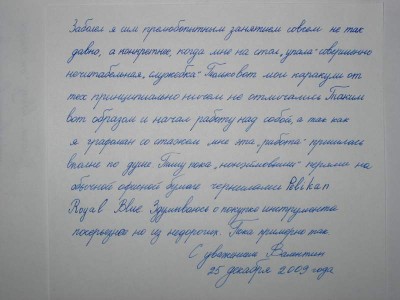 Заболел я сим прелюбопытным занятием совсем не так
давно, а конкретнее, когда мне на стол „упала" совершенно
нечитабельная „служебка". Только вот мои каракули от
тех принципиально ничем не отличались. Таким
вот образом и начал работу над собой, а так как
я графоман со стажем мне эта „работа" пришлась
вполне по душе. Пишу пока „неокзиловыми" перьями на
обычной офисной бумаге чернилами Pelikan
Royal Blue. Задумываюсь о покупке инструмента
посерьёзнее но из недорогих. Пока примерно так.
С уважением Валентин
25 декабря 2009 года